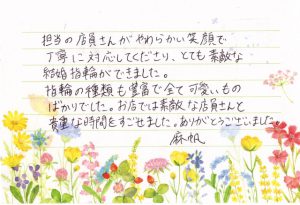 担当の店員さんがやわらかい笑顔で
丁寧に対応してくださり、とても素敵な
結婚指輪ができました。
指輪の種類も豊富で全て可愛いもの
ばかりでした。お店では素敵な店員さんと
貴重な時間をすごせました。ありがとうございました。
麻帆